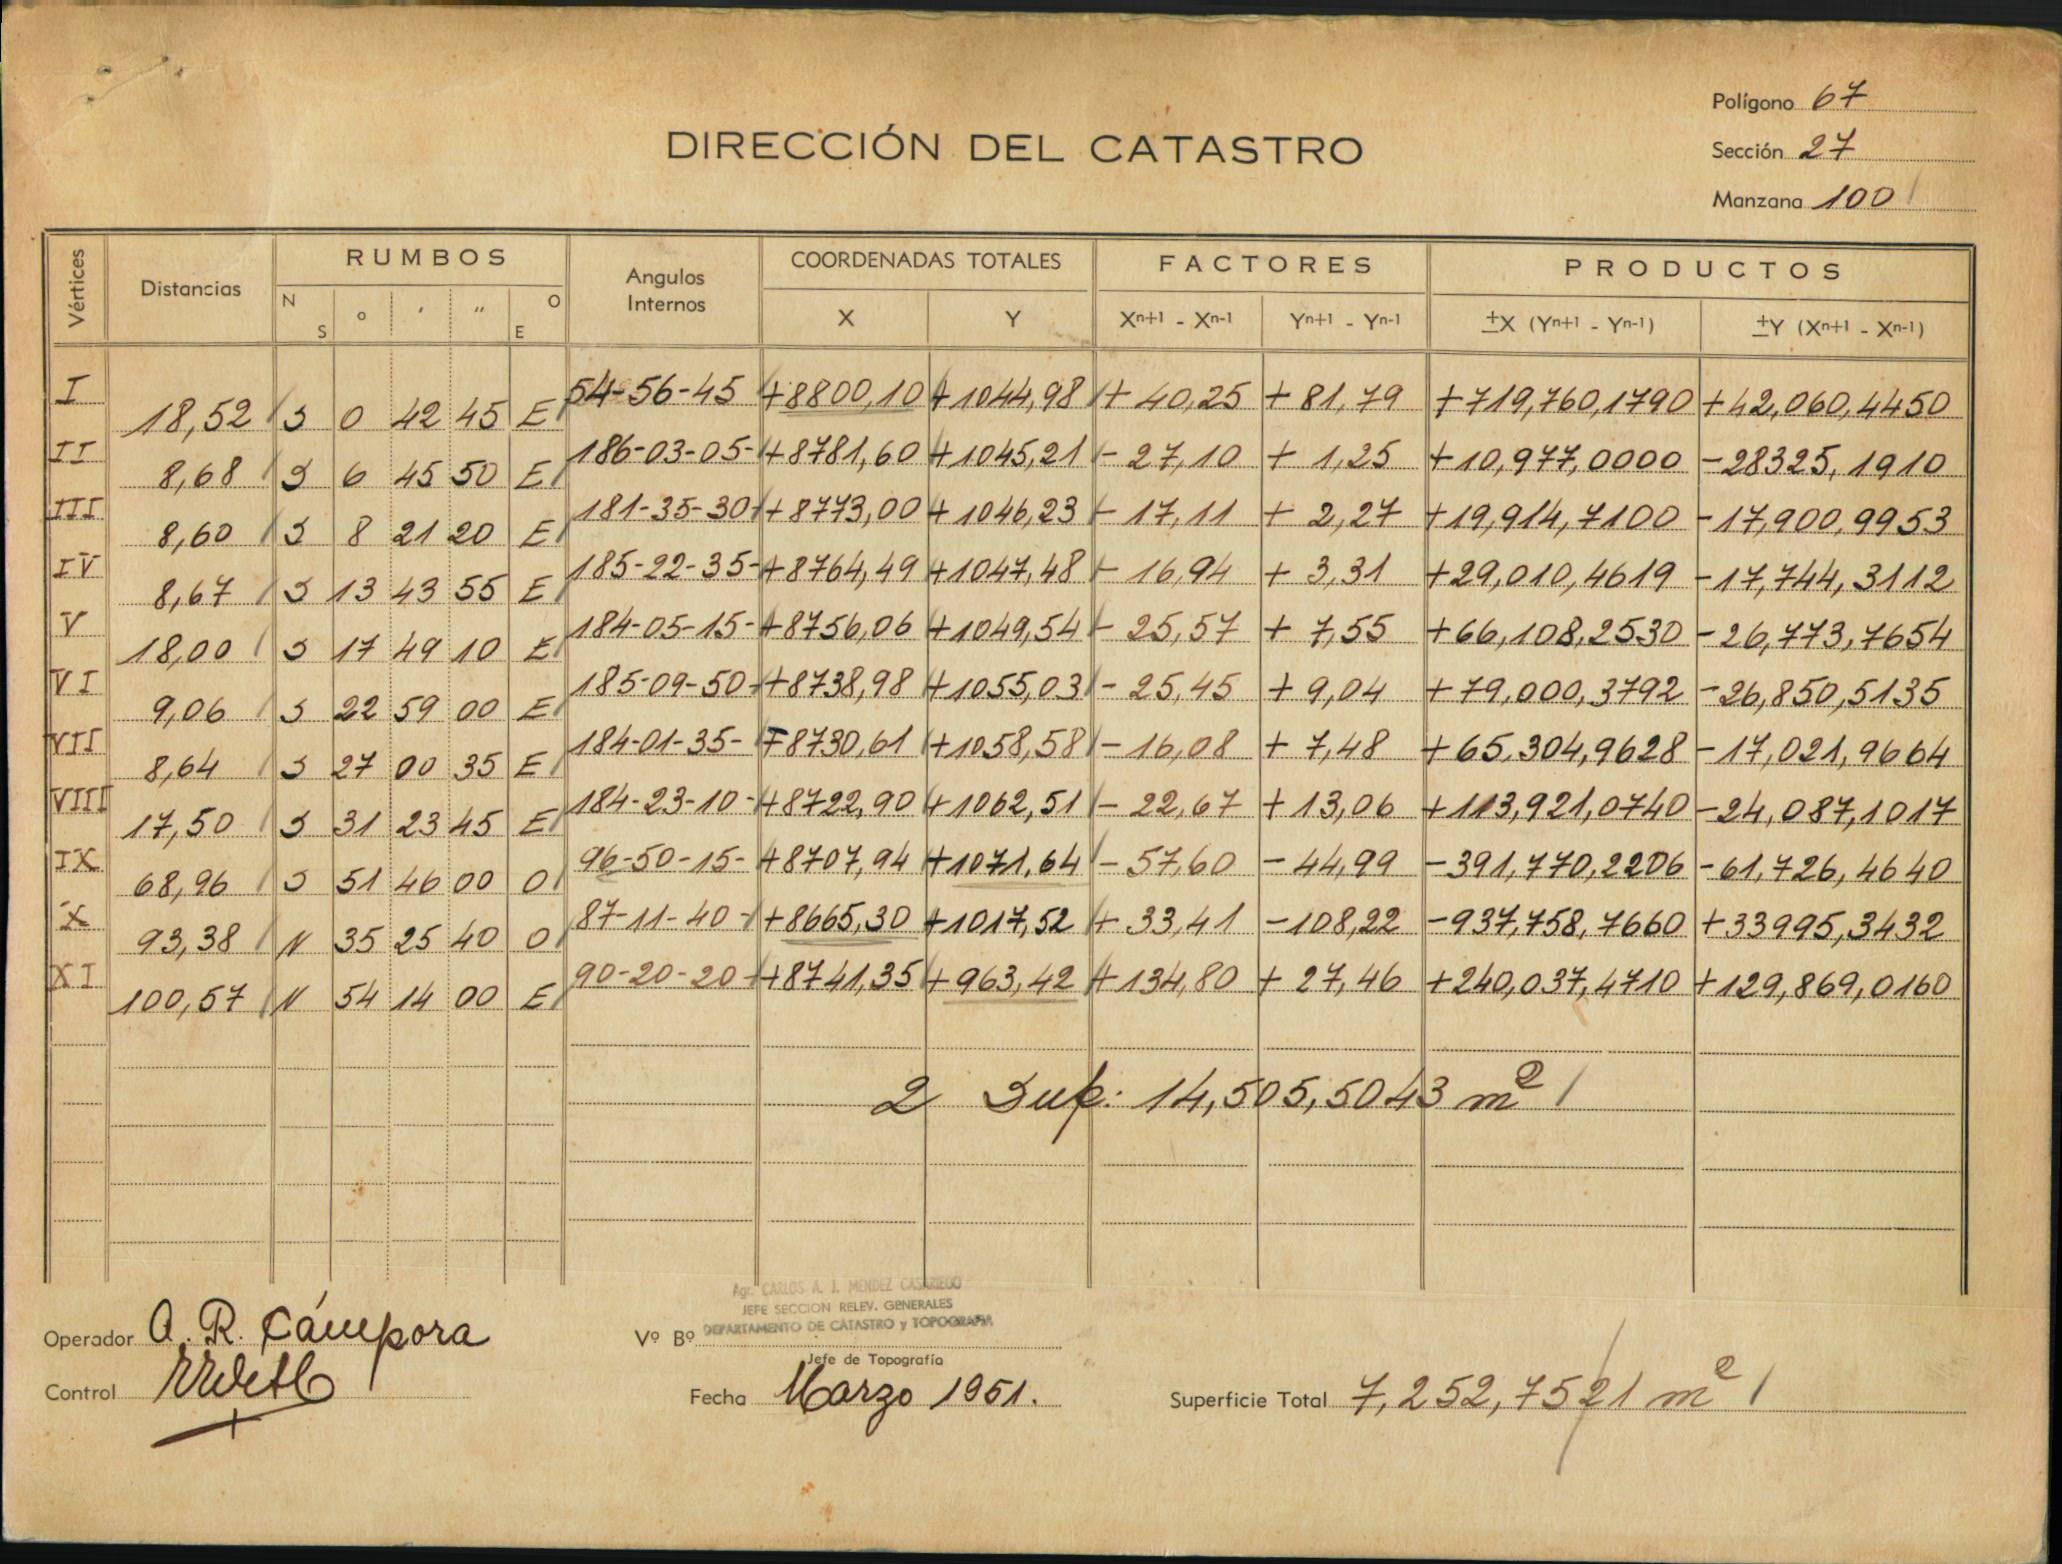 Polígono 67
DIRECCIÓN DEL CATASTRO
Sección 27
Manzana 100
Vértices Distancias RUMBOS Angulos Internos COORDENADAS TOTALES FACTORES PRODUCTOS
N S o ' " O E X Y Xn+1 - Xn-1 Yn+1 - Yn-1 ±X (Yn+1 - Yn-1) ±Y (Xn+1 - Xn-1)
I 54-56-45 +8800,10 +1044,98 + 40,25 + 81,79 +719,760,1790 +42,060,4450
18,52 S 0 42 45 E
II 186-03-05- +8781,60 +1045,21 - 27,10 + 1,25 +10,977,0000 -28325,1910
8,68 S 6 45 50 E
III 181-35-30- +8773,00 +1046,23 - 17,11 + 2,27 +19,914,7100 -17,900,9953
8,60 S 8 21 20 E
IV 185-22-35- +8764,49 +1047,48 - 16,94 + 3,31 +29,010,4619 -17,744,3112
8,67 S 13 43 55 E
V 184-05-15- +8756,06 +1049,54 - 25,57 + 7,55 +66,108,2530 -26,773,7654
18,00 S 17 49 10 E
VI 185-09-50- +8738,98 +1055,03 - 25,45 + 9,04 +79,000,3792 -26,850,5135
9,06 S 22 59 00 E
VII 184-01-35- +8730,61 +1058,58 - 16,08 + 7,48 +65,304,9628 -17,021,9664
8,64 S 27 00 35 E
VIII 184-23-10- +8722,90 +1062,51 - 22,67 + 13,06 +113,921,0740 -24,087,1017
17,50 S 31 23 45 E
IX 96-50-15- +8707,94 +1071,64 - 57,60 - 44,99 -391,770,2206 -61,726,4640
68,96 S 51 46 00 O
X 87-11-40- +8665,30 +1017,52 + 33,41 -108,22 -937,758,7660 +33995,3432
93,38 N 35 25 40 O
XI 90-20-20- +8741,35 +963,42 +134,80 + 27,46 +240,037,4710 +129,869,0160
100,57 N 54 14 00 E
2 Sup: 14,505,5043 m2
Agr. CARLOS A. J. MENDEZ CASARIEGO
JEFE SECCION RELEV. GENERALES
DEPARTAMENTO DE CATASTRO y TOPOGRAFIA
Operador A. R. Cámpora
Vº Bº
Jefe de Topografía
Control
Fecha Marzo 1951.
Superficie Total 7,252,7521 m2